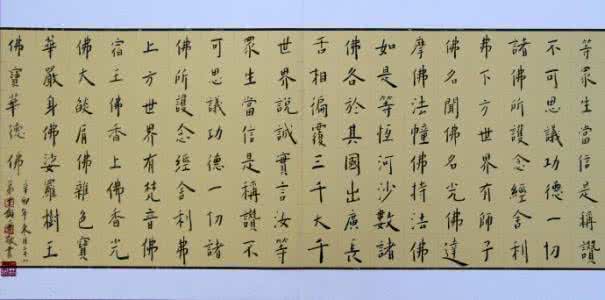 等眾生當信是稱讚
不可思議功德一切
諸佛所護念經舍利
弗下方世界有師子
佛名聞佛名光佛達
摩佛法幢佛持法佛
如是等恆河沙數諸
佛各於其國出廣長
舌相徧覆三千大千
世界說誠實言汝等
眾生當信是稱讚不
可思議功德一切諸
佛所護念經舍利弗
上方世界有梵音佛
宿王佛香上佛香光
佛大燄肩佛雜色寶
華嚴身佛娑羅樹王
佛寶華德佛
辛卯年